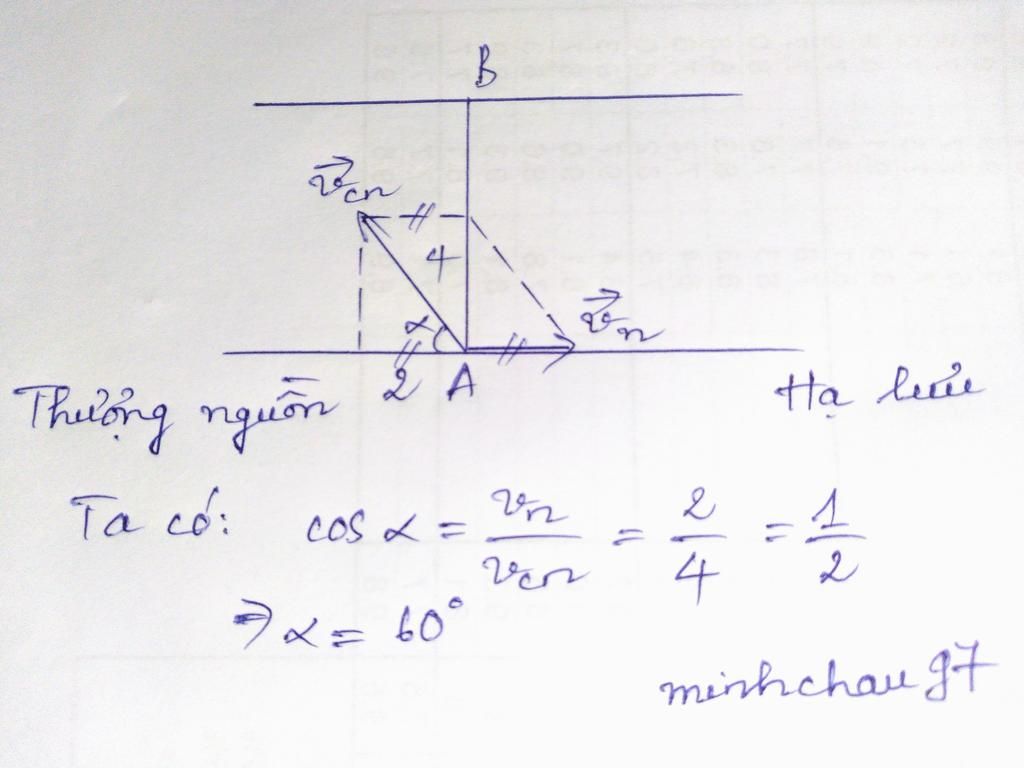 B
v⃗cn
4
α
v⃗n
2 A
Thượng nguồn
Hạ lưu
Ta có: cos α = vn/vcn = 2/4 = 1/2
⇒ α = 60°
minhchau97